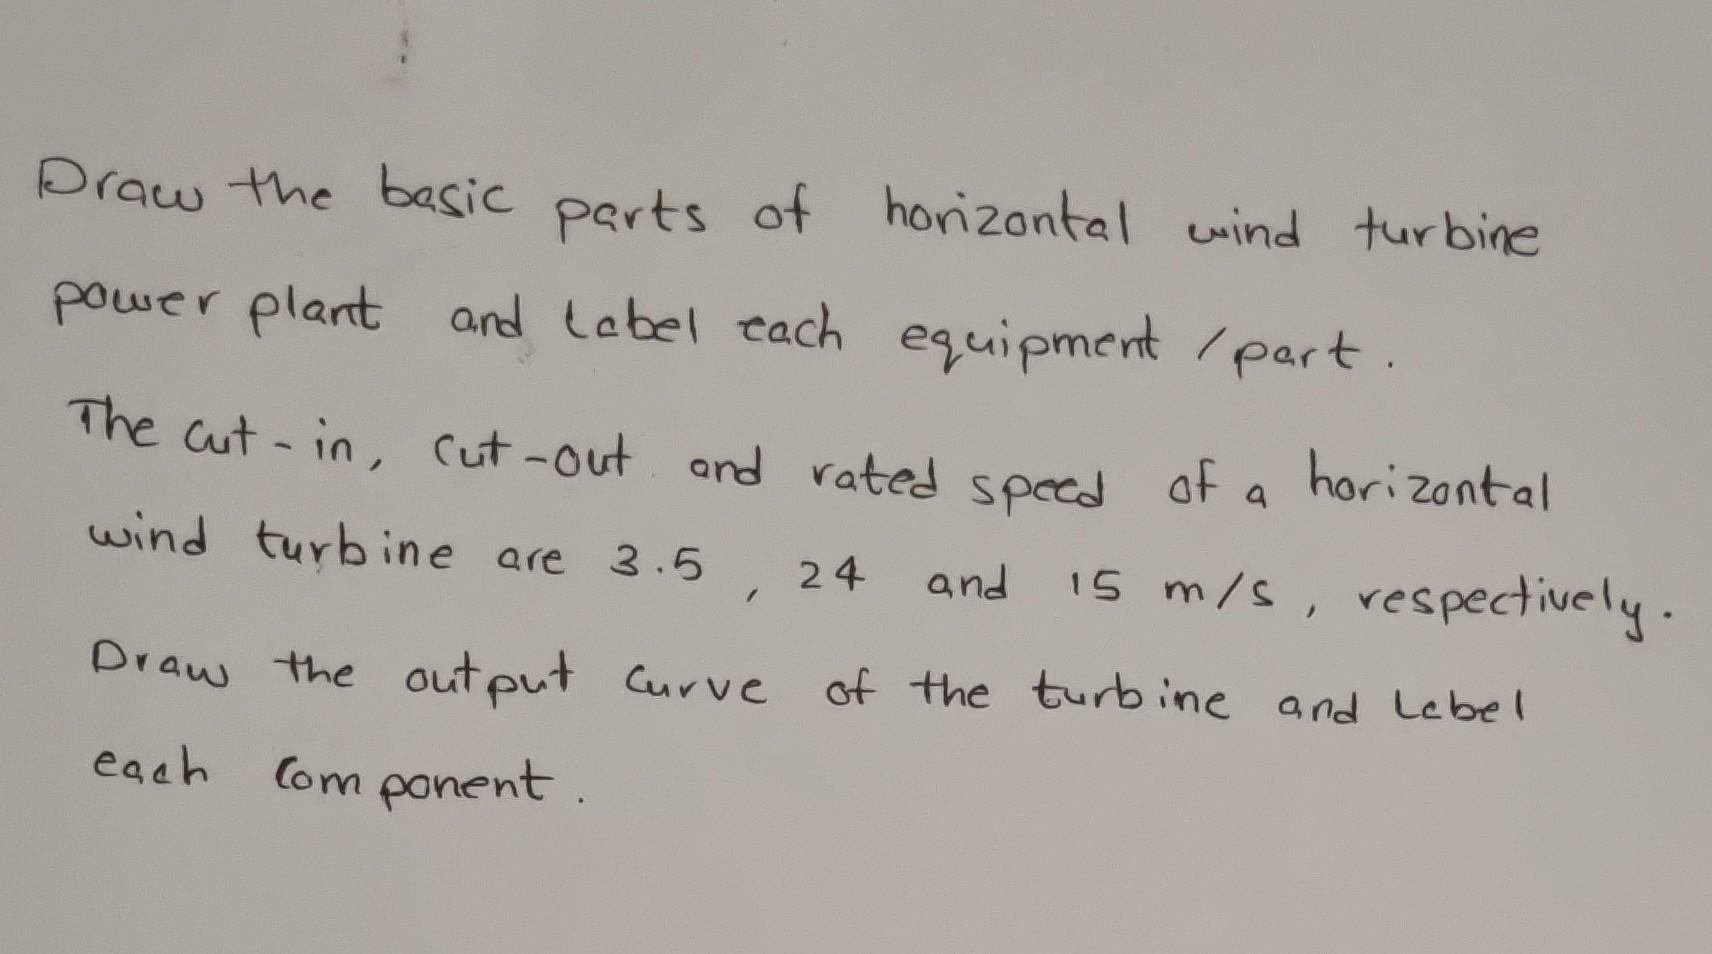 Draw the basic parts of horizontal wind turbine
power plant and Label each equipment / part.
The cut-in, cut-out and rated speed of a horizontal
wind turbine are 3.5, 24 and 15 m/s, respectively.
Draw the output curve of the turbine and Label
each component.